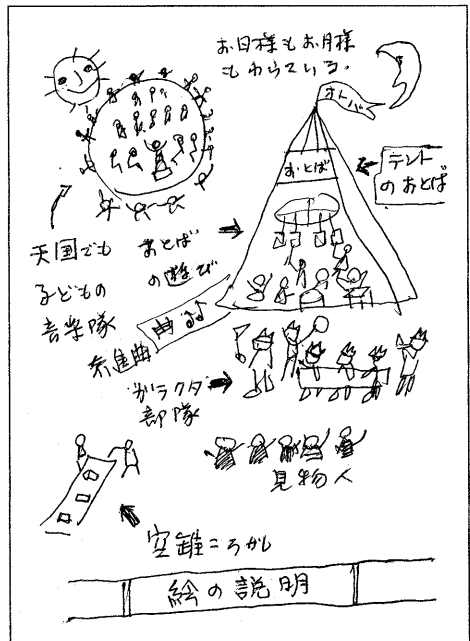 お日様もお月様
もわらっている。
オトバ
おとば
テント
のおとば
天国でも
子どもの
音楽隊
おとば
の遊び
ガラクタ
部隊
見物人
空罐ころがし
絵の説明